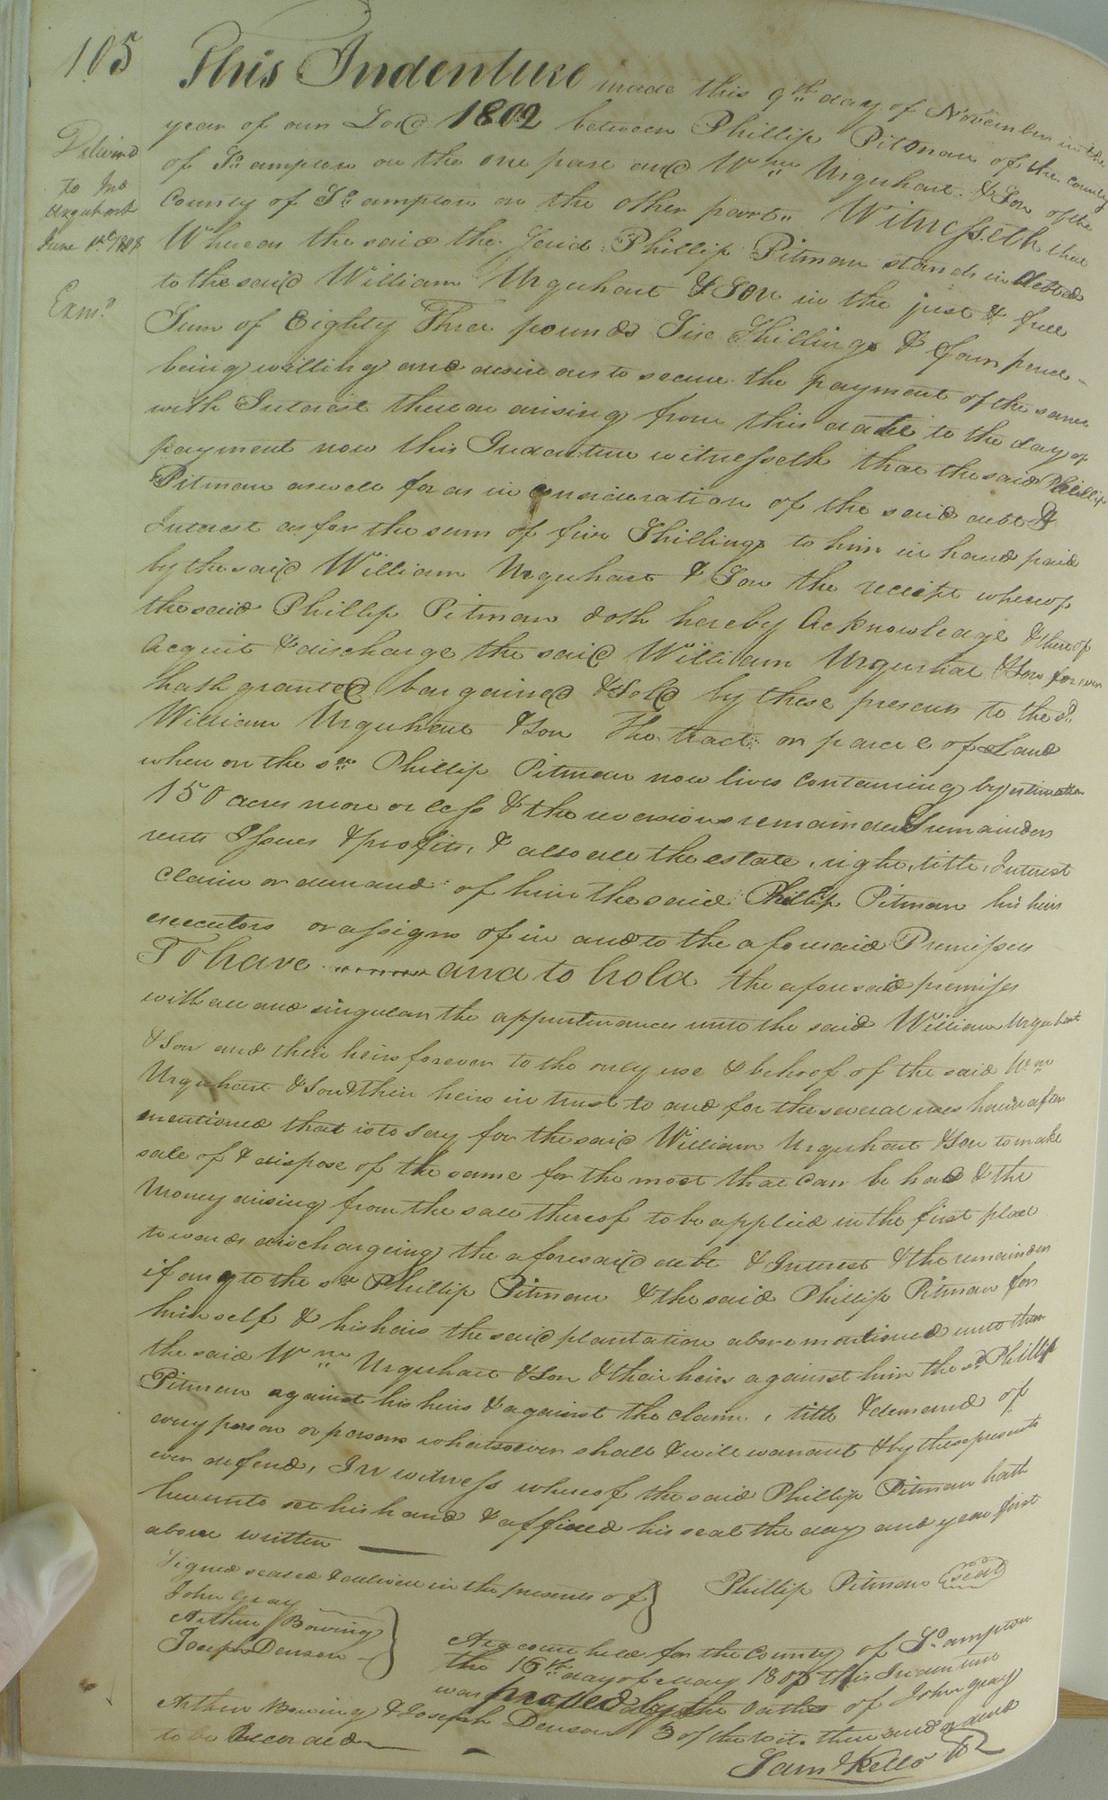 105
Deliverd
to Jno
Urquhart
June 1st 1808
Exmd
This Indenture made this 9th day of November in the
year of our Lord 1802 between Phillip Pitman of the County
of So ampton on the one part and Wm Urquhart & Son of the
County of So ampton on the other part Witnesseth that
Whereas the said the Said Phillip Pitman stands indebted
to the said William Urquhart & Son in the just & full
Sum of Eighty Three pounds Six Shillings & pence
being willing and desirous to secure the payment of the same
with Interest thereon arising from this date to the day of
payment now this Indenture witnesseth that the said Phillip
Pitman aswell for as in consideration of the said debt &
Interest as for the sum of five Shillings to him in hand paid
by the said William Urquhart & Son the receipt whereof
the said Phillip Pitman doth hereby Acknowledge & thereof
Acquit & discharge the said William Urquhat & Son forever
hath granted bargained & Sold by these presents to the sd
William Urquhart & Son The tract or parcel of Land
where on the sd Phillip Pitman now lives containing by estimation
150 acres more or less & the reversions remainder & remainders
rents Issues & profits, & also all the estate, right, title, Interest
claim or demand of him the said Phillip Pitman his heirs
executors or assigns of in and to the aforesaid Premisses
To have and to hold the aforesaid premises
with all and singular the appurtenances unto the said William Urquhart
& Son and their heirs forever to the only use & behoof of the said Wm
Urquhart & Son & their heirs in trust to and for the several uses herein after
mentioned that is to say for the said William Urquhart & Son to make
sale of & dispose of the same for the most that can be had & the
Money arising from the sale thereof to be applied in the first place
towards dischargeing the aforesaid debt & Interest & the remainder
if any to the sd Phillip Pitman & the said Phillip Pitman for
himself & his heirs the said plantation above mentioned unto them
the said Wm Urquhart & Son & their heirs against him the sd Phillip
Pitman against his heirs & against the claim, title & demand of
every person or persons whatsoever shall & will warrant & by these presents
ever defend, In witness whereof the said Phillip Pitman hath
hereunto set his hand & affixed his seal the day and year first
above written
Signed sealed & deliverd in the presents of
Phillip Pitman (seal)
John Gray
Arthur Bowing
Joseph Denson
At a court held for the County of So ampton
the 16th day of May 180 this Indenture
was proved by the oaths of John Gray
Arthur Bowing & Joseph Denson 3 of the wits. thereto and ordered
to be Recorded
Saml Kello